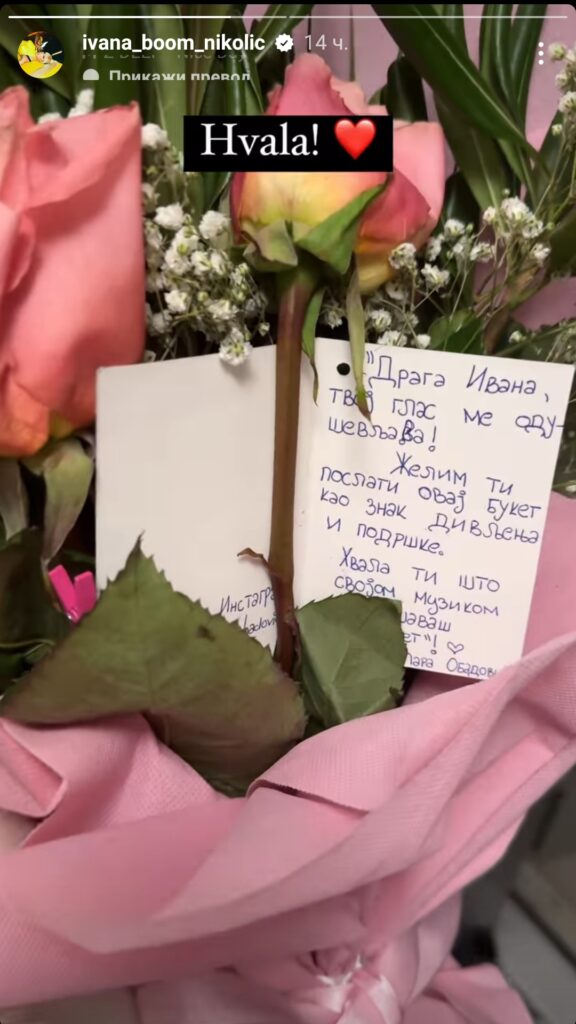 ivana_boom_nikolic 14 ч.
Прикажи превод
Hvala! ❤️
"Драга Ивана,
твој глас ме оду-
шевљава!
Желим ти
послати овај букет
као знак дивљења
и подршке.
Хвала ти што
својом музиком
♡
Обадов